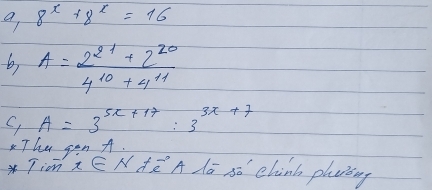 a, 8^x + 8^x = 16
b, A = (2^21 + 2^20) / (4^10 + 4^11)
c, A = 3^(5x + 17) : 3^(3x + 7)
* Thu gọn A.
* Tìm x ∈ N để A là số chính phương